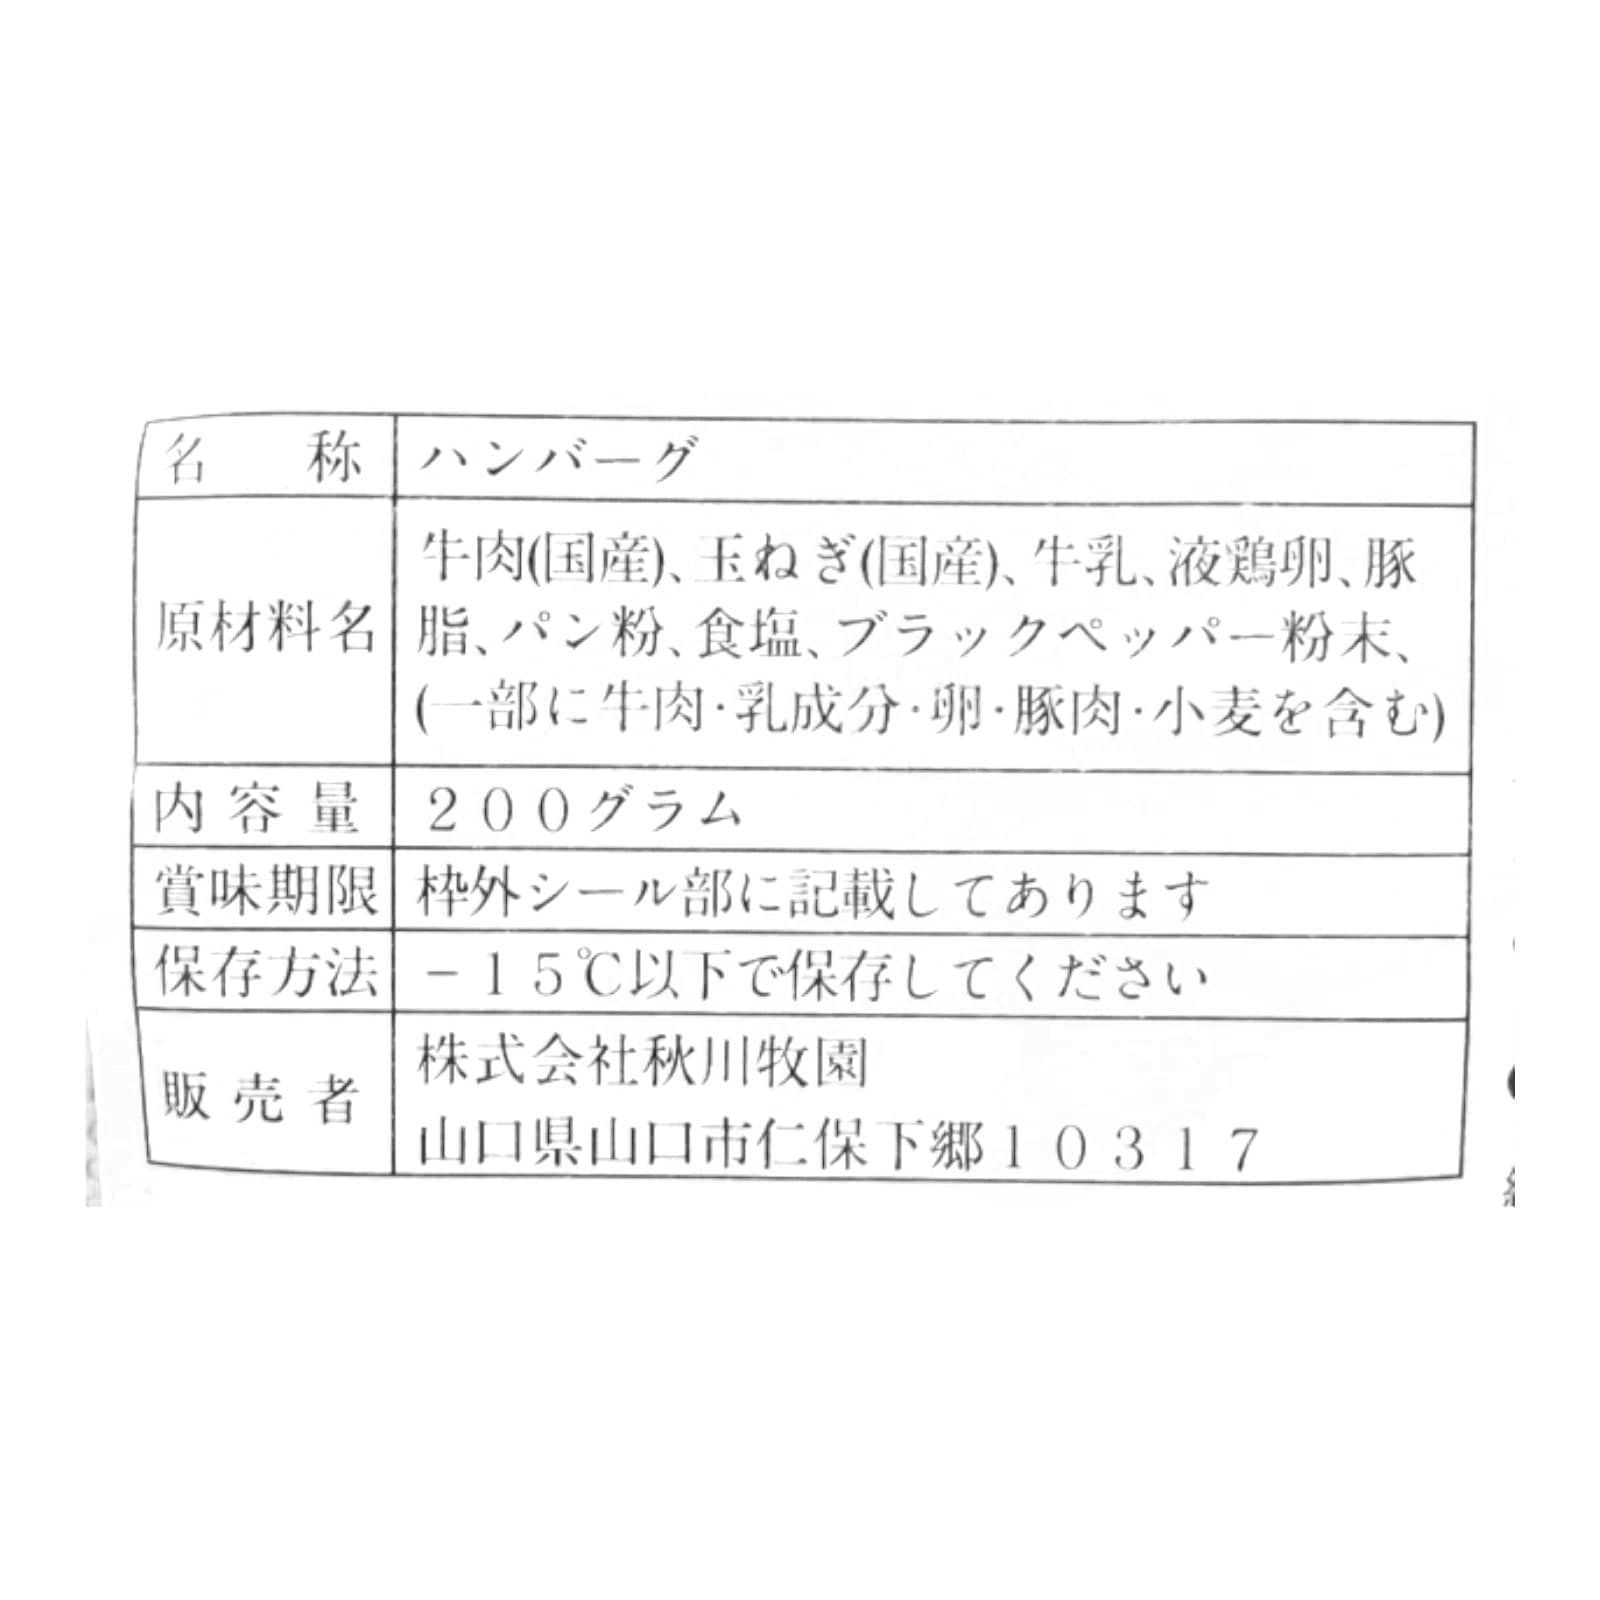 名称 ハンバーグ
牛肉(国産)、玉ねぎ(国産)、牛乳、液鶏卵、豚
原材料名 脂、パン粉、食塩、ブラックペッパー粉末、
(一部に牛肉・乳成分・卵・豚肉・小麦を含む)
内容量 ２００グラム
賞味期限 枠外シール部に記載してあります
保存方法 －１５℃以下で保存してください
販売者 株式会社秋川牧園
山口県山口市仁保下郷１０３１７